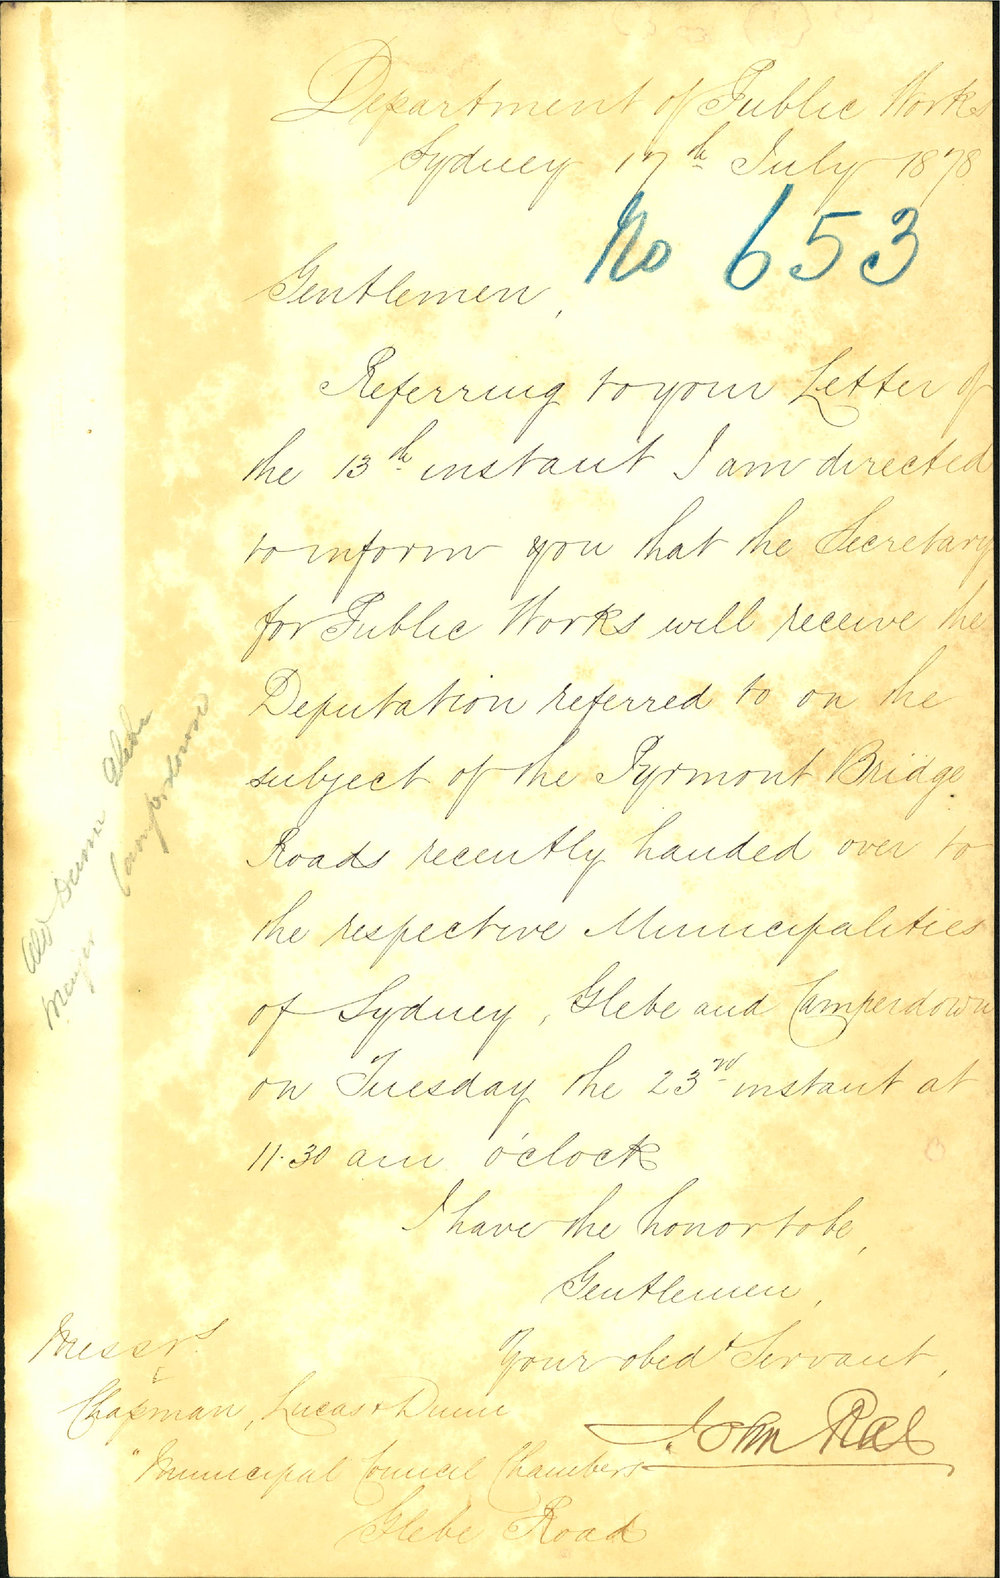 Department of Public Works
Sydney 17th July 1878
No 653
Gentlemen,
Referring to your Letter of
the 13th instant I am directed
to inform you that the Secretary
for Public Works will receive the
Deputation referred to on the
subject of the Pyrmont Bridge
Roads recently handed over to
the respective Municipalities
of Sydney, Glebe and Camperdown
on Tuesday the 23rd instant at
11.30 am o'clock
I have the honor to be,
Gentlemen,
Your obedt Servant,
John Rae
Messrs
Chapman, Lucas & Dunn
"Municipal Council Chambers
Glebe Road
Ald Dunn Glebe
Mayor Camperdown